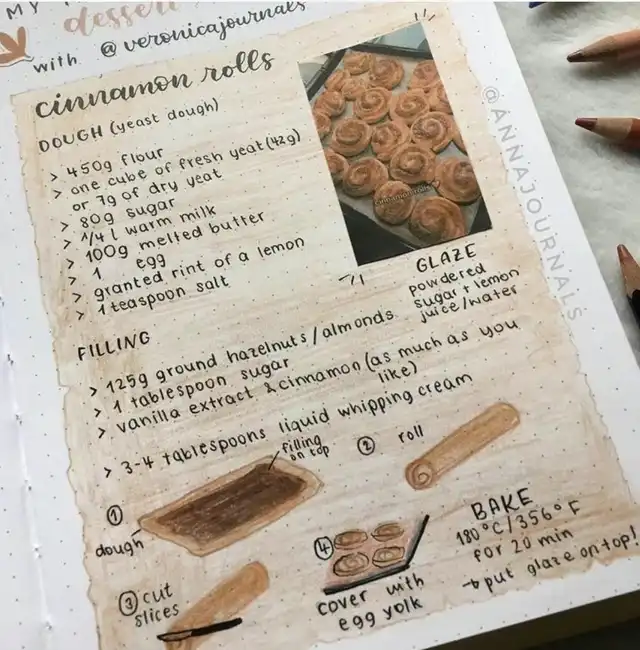 MY
dessert
with @veronicajournals
cinnamon rolls
DOUGH (yeast dough)
> 450g flour
> one cube of fresh yeat (42g)
or 7g of dry yeat
> 80g sugar
> 1/4 l warm milk
> 100g melted butter
> 1 egg
> granted rint of a lemon
> 1 teaspoon salt
cinnamon rolls
GLAZE
powdered
sugar + lemon
juice/water
FILLING
> 125g ground hazelnuts/almonds
> 1 tablespoon sugar
> vanilla extract & cinnamon (as much as you
like)
> 3-4 tablespoons liquid whipping cream
① dough
filling
on top
② roll
③ cut
slices
④
cover with
egg yolk
BAKE
180°C/356°F
for 20 min
→ put glaze on top!
@ANNAJOURNALS